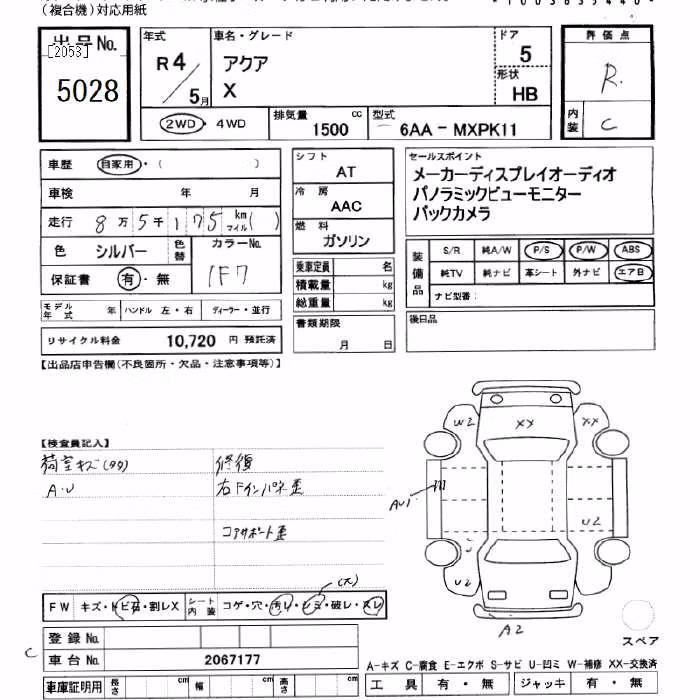 (複合機)対応用紙
*1003635440*
出品No.
[2053]
5028
年式
R4/5月
車名・グレード
アクア
X
ドア
5
形状
HB
2WD・4WD
排気量
1500
cc
型式
6AA－MXPK11
評価点
R.
内装
C
車歴
自家用・( )
車検
年 月
走行
8万5千175km
マイル( )
色
シルバー
色替
カラーNo.
1F7
保証書
有・無
モデル年式
年
ハンドル
左・右
ディーラー・並行
リサイクル料金
10,720 円 預託済
シフト
AT
冷房
AAC
燃料
ガソリン
乗車定員
名
積載量
kg
総重量
kg
書類期限
月 日
セールスポイント
メーカーディスプレイオーディオ
パノラミックビューモニター
バックカメラ
装備品
S/R
純A/W
P/S
P/W
ABS
純TV
純ナビ
革シート
外ナビ
エアB
ナビ型番：
後日品
【出品店申告欄(不良箇所・欠品・注意事項等)】
【検査員記入】
荷室キズ(タタ)
修復
A・U
右Fインパネ歪
コアサポート歪
W2
XX
XX
AU1
U2
U
U2
A2
スペア
(大)
FW
キズ・トビ石・割レX
シート内装
コゲ・穴・汚レ・シミ・破レ・スレ
登録No.
C
車台No.
2067177
車庫証明用
長さ
cm
幅
cm
高さ
cm
A-キズ C-腐食 E-エクボ S-サビ U-凹ミ W-補修 XX-交換済
工具
有・無
ジャッキ
有・無